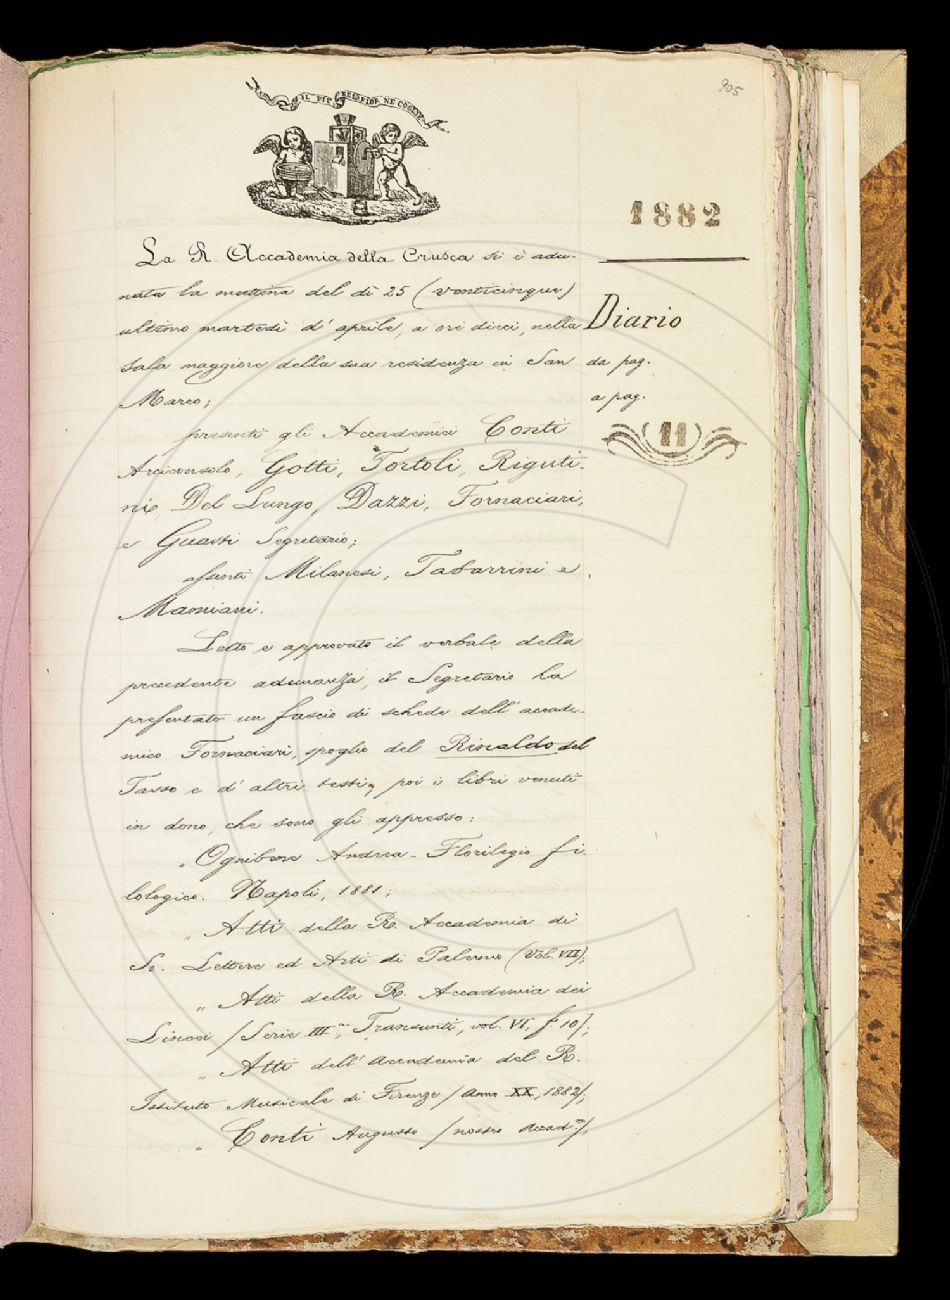 905
IL PIÙ BEL FIOR NE COGLIE
1882
La R. Accademia della Crusca si è adu-
nata la mattina del dì 25 (venticinque)
ultimo martedì d'aprile, a ore dieci, nella
Sala maggiore della sua residenza in San
Marco;
presenti gli Accademici Conti
Arciconsolo, Gotti, Tortoli, Riguti-
ni, Del Lungo, Dazzi, Fornaciari,
e Guasti Segretario;
assenti Milanesi, Tabarrini e
Mamiani.
Letto e approvato il verbale della
precedente adunanza, il Segretario ha
presentato un fascio di schede dell'accade-
mico Fornaciari, spoglio del Rinaldo del
Tasso e d'altri testi, poi i libri venuti
in dono, che sono gli appresso:
" Ognibene Andrea - Florilegio fi-
lologico. Napoli, 1881;
" Atti della R. Accademia di
Sc. Lettere ed Arti di Palermo (Vol. VII);
" Atti della R. Accademia dei
Lincei (Serie III.a, Transunti, vol. VI, f. 10);
" Atti dell'Accademia del R.
Istituto Musicale di Firenze (Anno XX, 1882);
" Conti Augusto (nostro Accad.o);
Diario
da pag.
a pag.
11